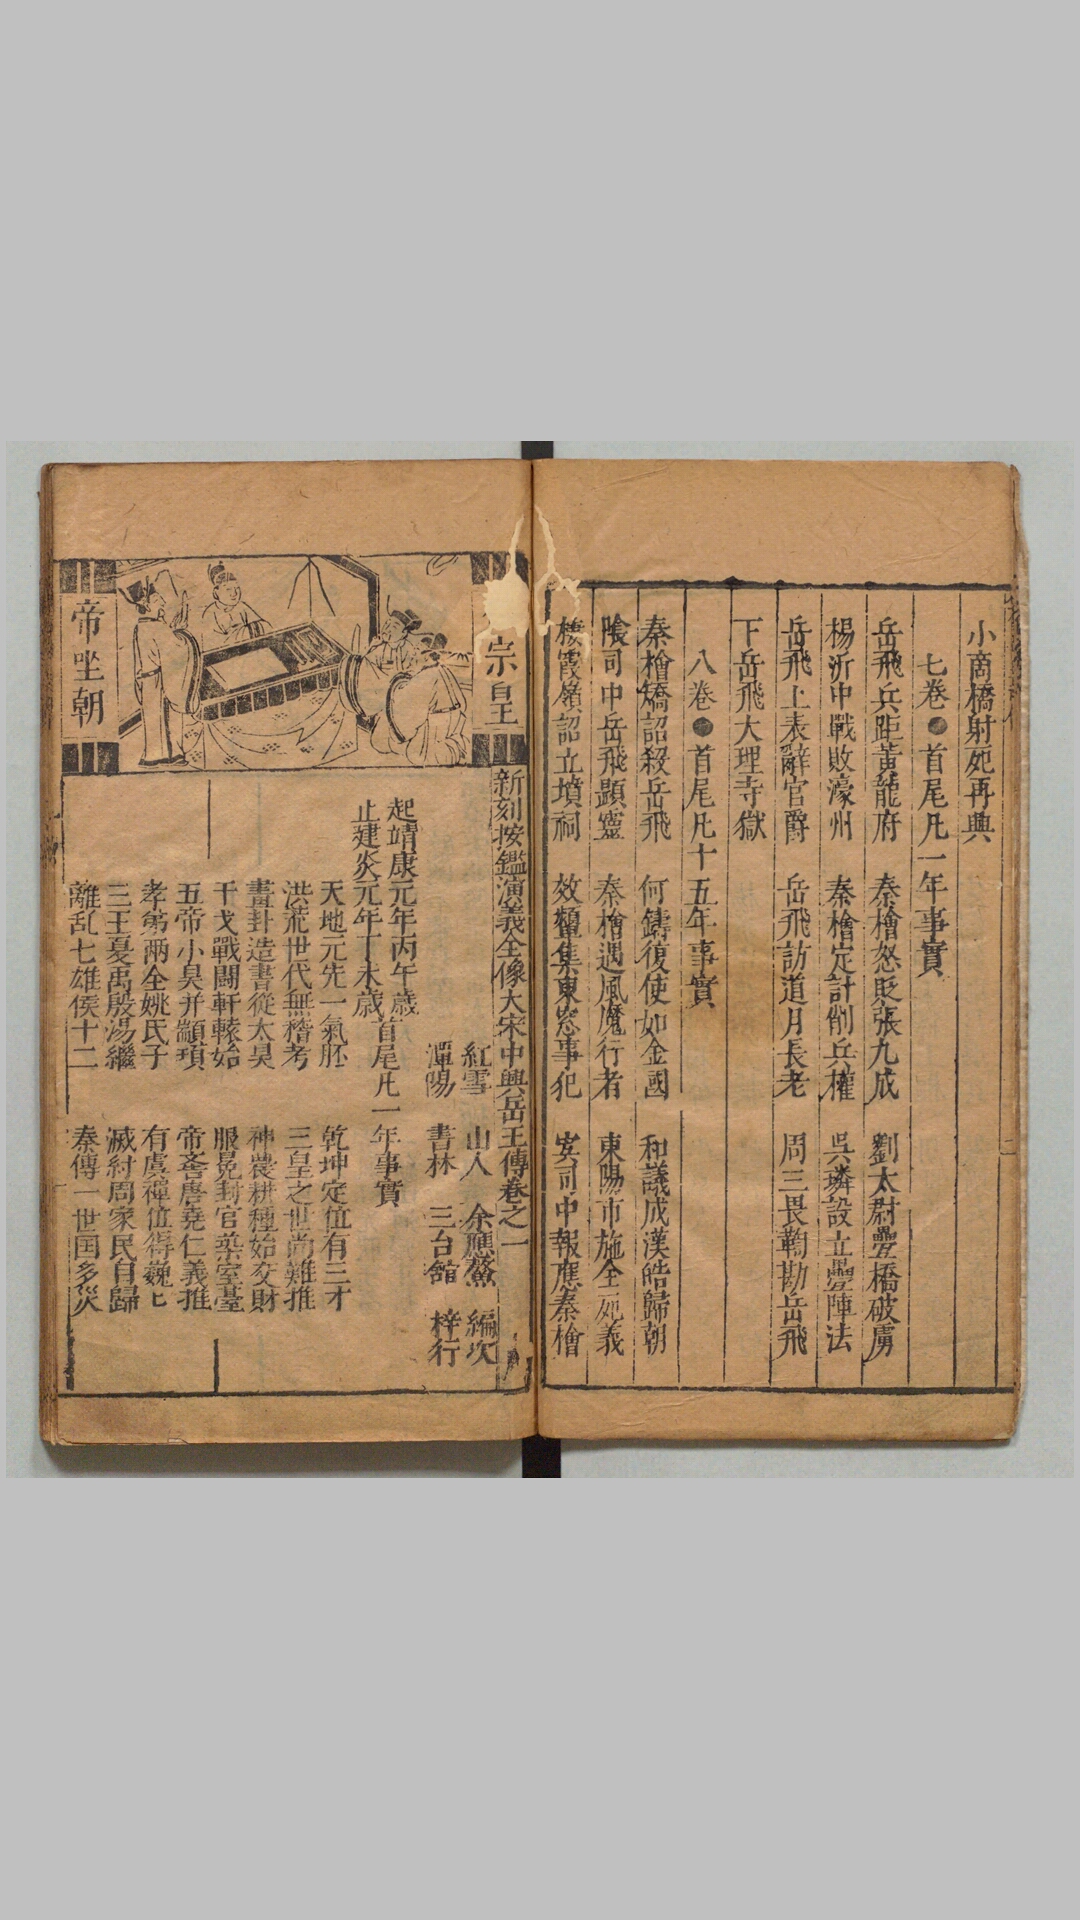 小商橋射死再興
七卷●首尾凡一年事實
岳飛兵距黃龍府　秦檜怒貶張九成　劉太尉疊橋破虜
楊沂中戰敗濠州　秦檜定計削兵權　吳璘設立疊陣法
岳飛上表辭官爵　岳飛訪道月長老　周三畏鞫勘岳飛
下岳飛大理寺獄
八卷●首尾凡十五年事實
秦檜矯詔殺岳飛　何鑄復使如金國　和議成漢皓歸朝
陰司中岳飛顯靈　秦檜遇風魔行者　東陽市施全死義
棲霞嶺詔立墳祠　效顰集東窓事犯　冥司中報應秦檜
宗皇
帝坐朝
新刻按鑑演義全像大宋中興岳王傳卷之一
紅雪　山人　余應鰲　編次
潭陽　書林　三台舘　梓行
起靖康元年丙午歲
止建炎元年丁未歲
首尾凡一年事實
天地元先一氣胚　乾坤定位有三才
洪荒世代無稽考　三皇之世尚難推
畫卦造書從太昊　神農耕種始交財
干戈戰鬬軒轅始　服冕封官築室臺
五帝小昊并顓頊　帝嚳唐堯仁義推
孝弟兩全姚氏子　有虞禪位得巍巍
三王夏禹殷湯繼　滅紂周家民自歸
離乱七雄侯十二　秦傳一世国多災